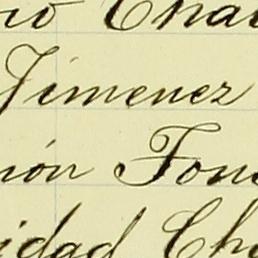 no Cha
Jimenez
nón Fons
idad Cha